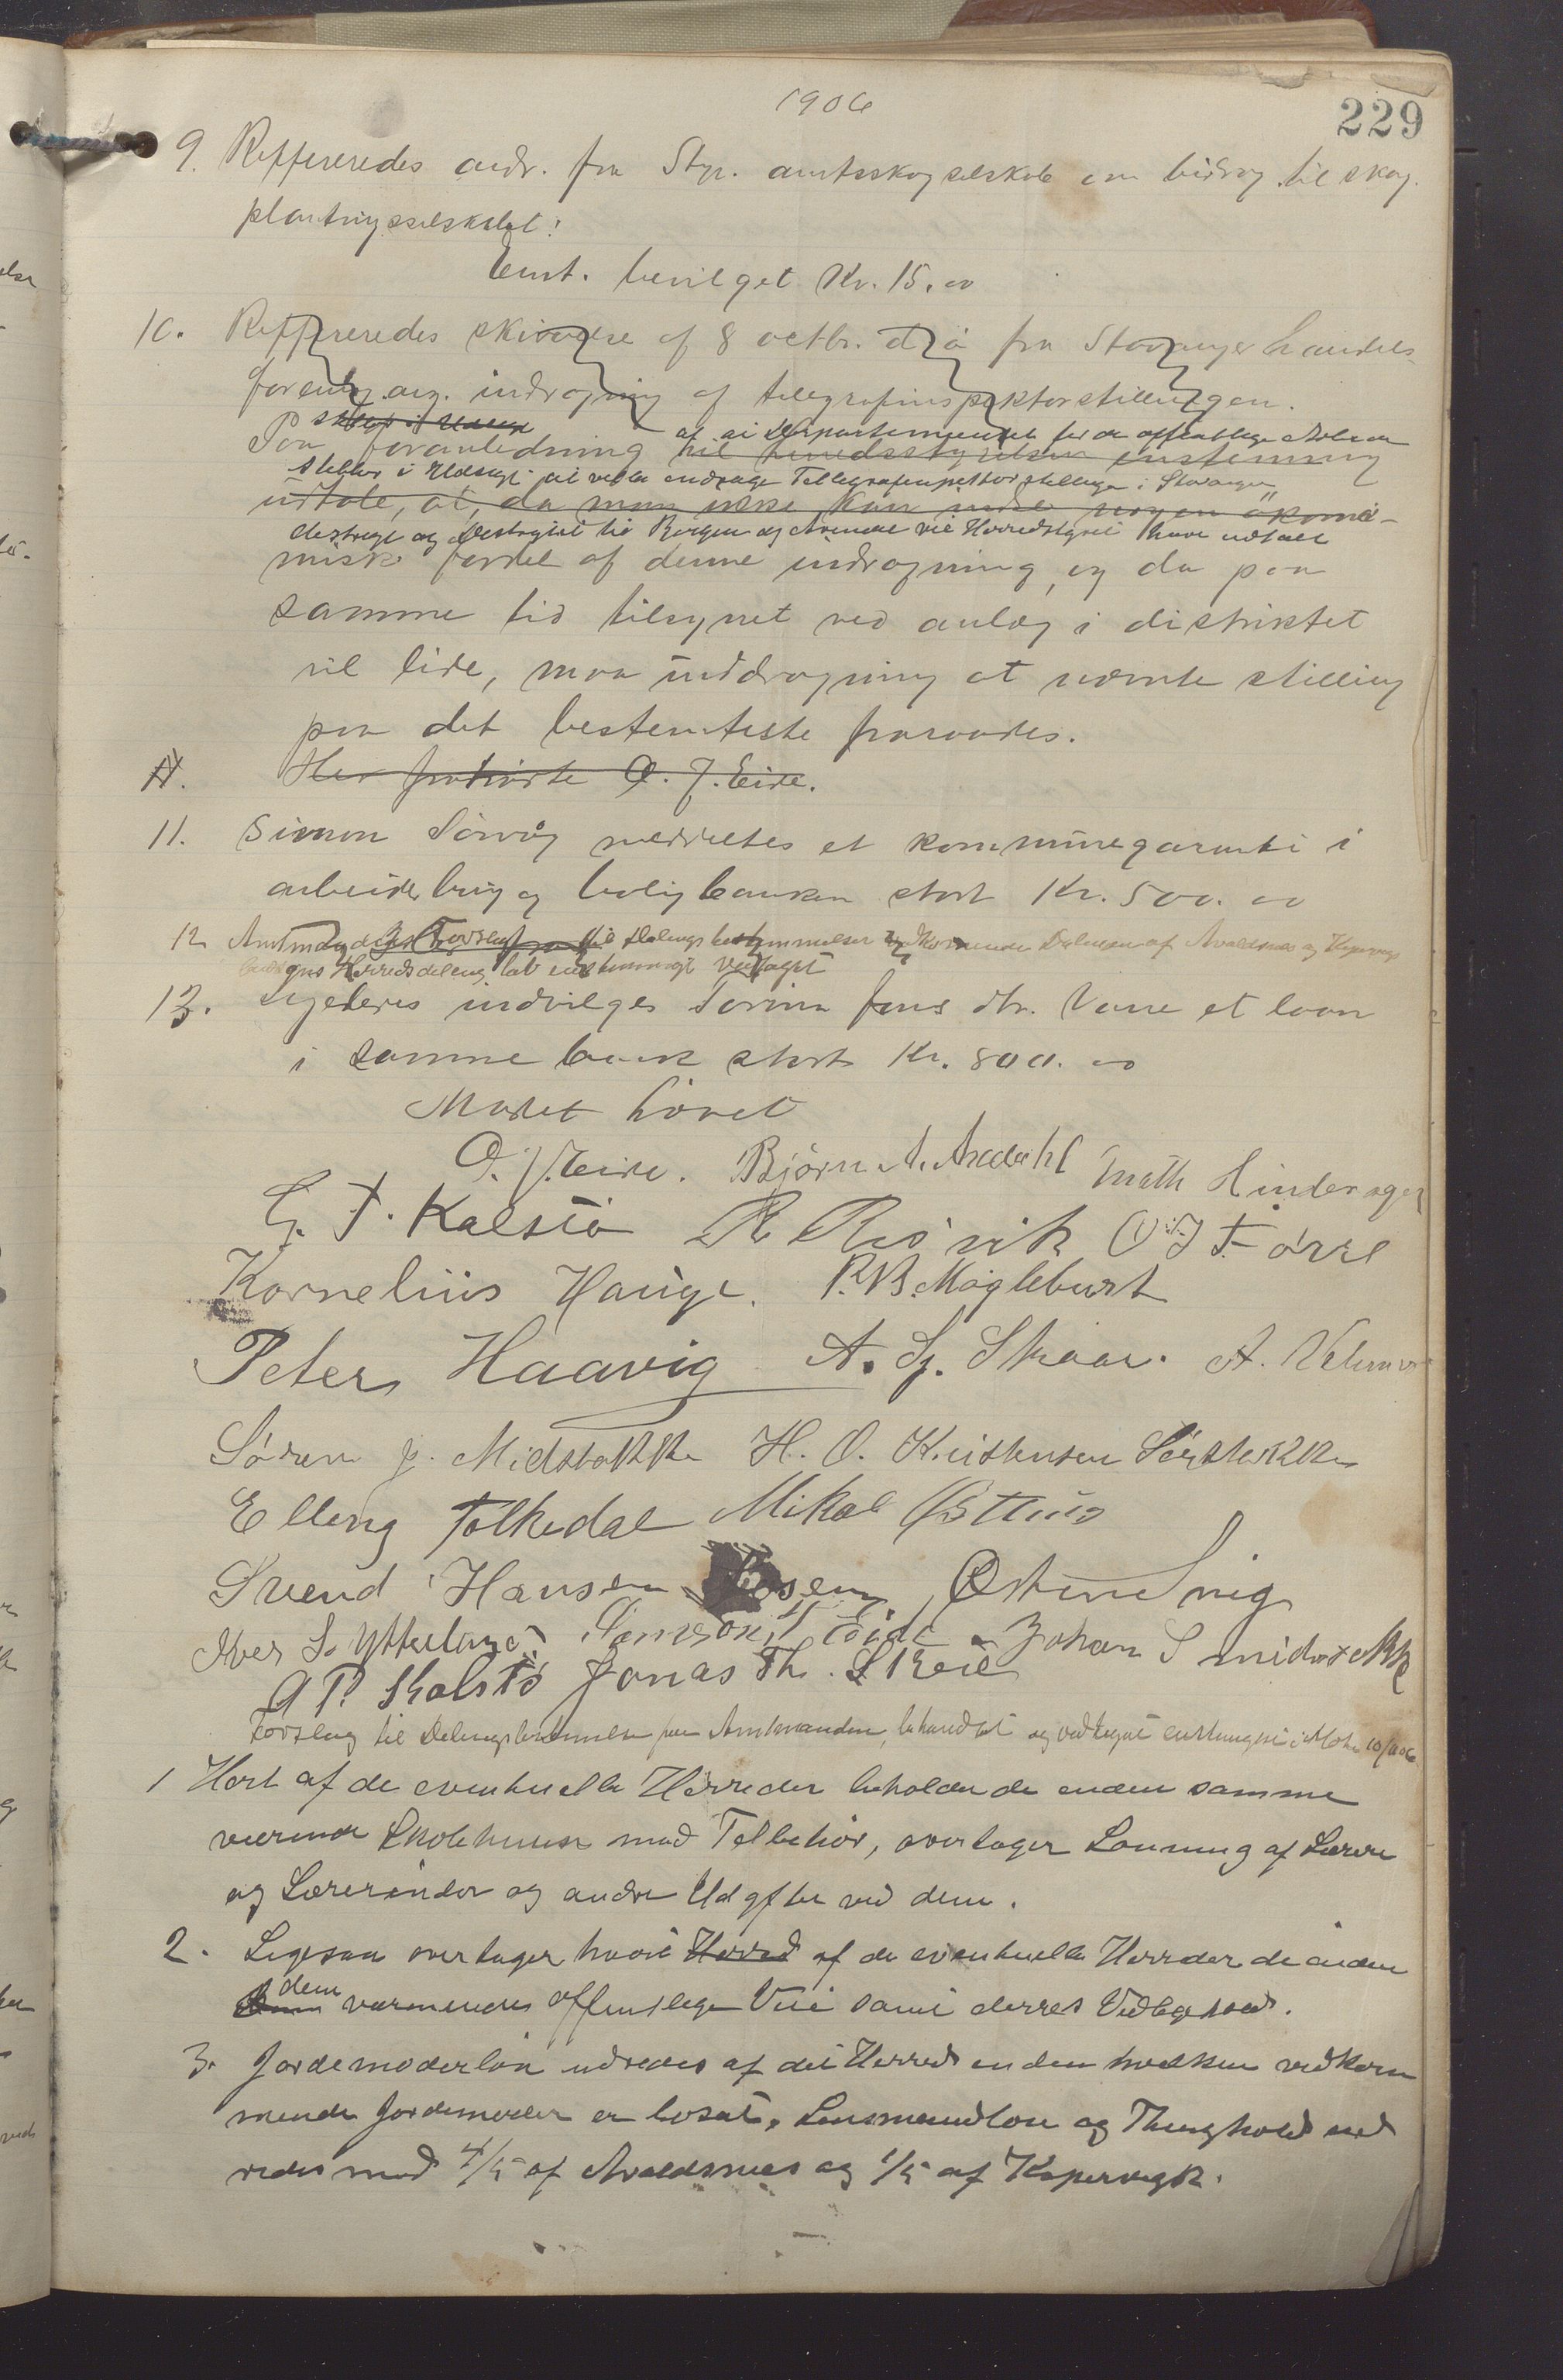 1906
229
9. Reffereredes andr. fra Stgr. amtsskogselskab om bidrag til skog.
plantningsselskabet:
Enst. bevilget Kr. 15.00
10. Reffereredes skrivelse af 8 octbr. d. å fra Stavanger handels-
forening ang. inddragning af telegrafinspektorstillingen.
at ai Departementet for de offentlige Arbeider
Paa foranledning vil herredsstyrelsen enstemmig
stilles i Udsigt at ville inddrage Tellegrafinspektørstillingen i Stavanger
udtale, at, da man ikke kan inde nogen økono-
distrigt og Bergen og Arendal vil Herredstyret have udtalt
misk fordel af denne inddragning, og da paa
samme tid tilsynet ved anlæg i distriktet
vil lide, maa inddragning at nævnte stilling
paa det bestemteste fraraades.
11. Her fratraadte O. J. Eide.
11. Simon Sørvåg meddeltes et kommunegaranti i
arbeiderbrug og boligbanken stort Kr. 500.00
12 Amtmandens Forslag til Delingsbestemmelser vedkommende Delingen af Avaldsnes og Kopervigs
Herredsdeling blev enstemmigt vedtaget
13. Ligeledes indvilges Torina Jens dtr. Vaare et laan
i samme bank stort Kr. 800.00
Mødet hævet
O. J. Eide. Bjørn A. Aradahl Math Hinderager
G. T. Kalstø R Røsvik O. J. Førre
Kornelius Hauge. P. B. Mågleburt
Peter Haavig A. Sj. Skaar. A. Velure
Søren J. Midtbøkke H. O. Kristensen Sørstokke
Elling Følkedal Mikal Østhus
Svend Hansen Østen Snig
Iver S. Ytreland. Simson H Eide. Johan S midstokke
G P. Kalstø Jonas Th. Skeie
Forslag til Delingsbestemmelser fra Amtmanden, behandlet og vedtaget enstemmigt i Møte 10/11 06
1 Hvert af de eventuelle Herreder beholder de inden samme
værende Skolehuse med Tilbehør, overtager Lønning af Lærere
og Lærerinder og andre Udgifter ved dem.
2. Ligesaa overtager hvert Herred af de eventuelle Herreder de inden
dem værendes offentlige Veie samt derres Vedligehold.
3. Jordemoderløn udredes af det Herred inden hvilken vedkom
mende Jordemoder er bosat. Lensmandløn og Thinghold ud
redes med 4/5 af Avaldsnes og 1/5 af Kopervigk.